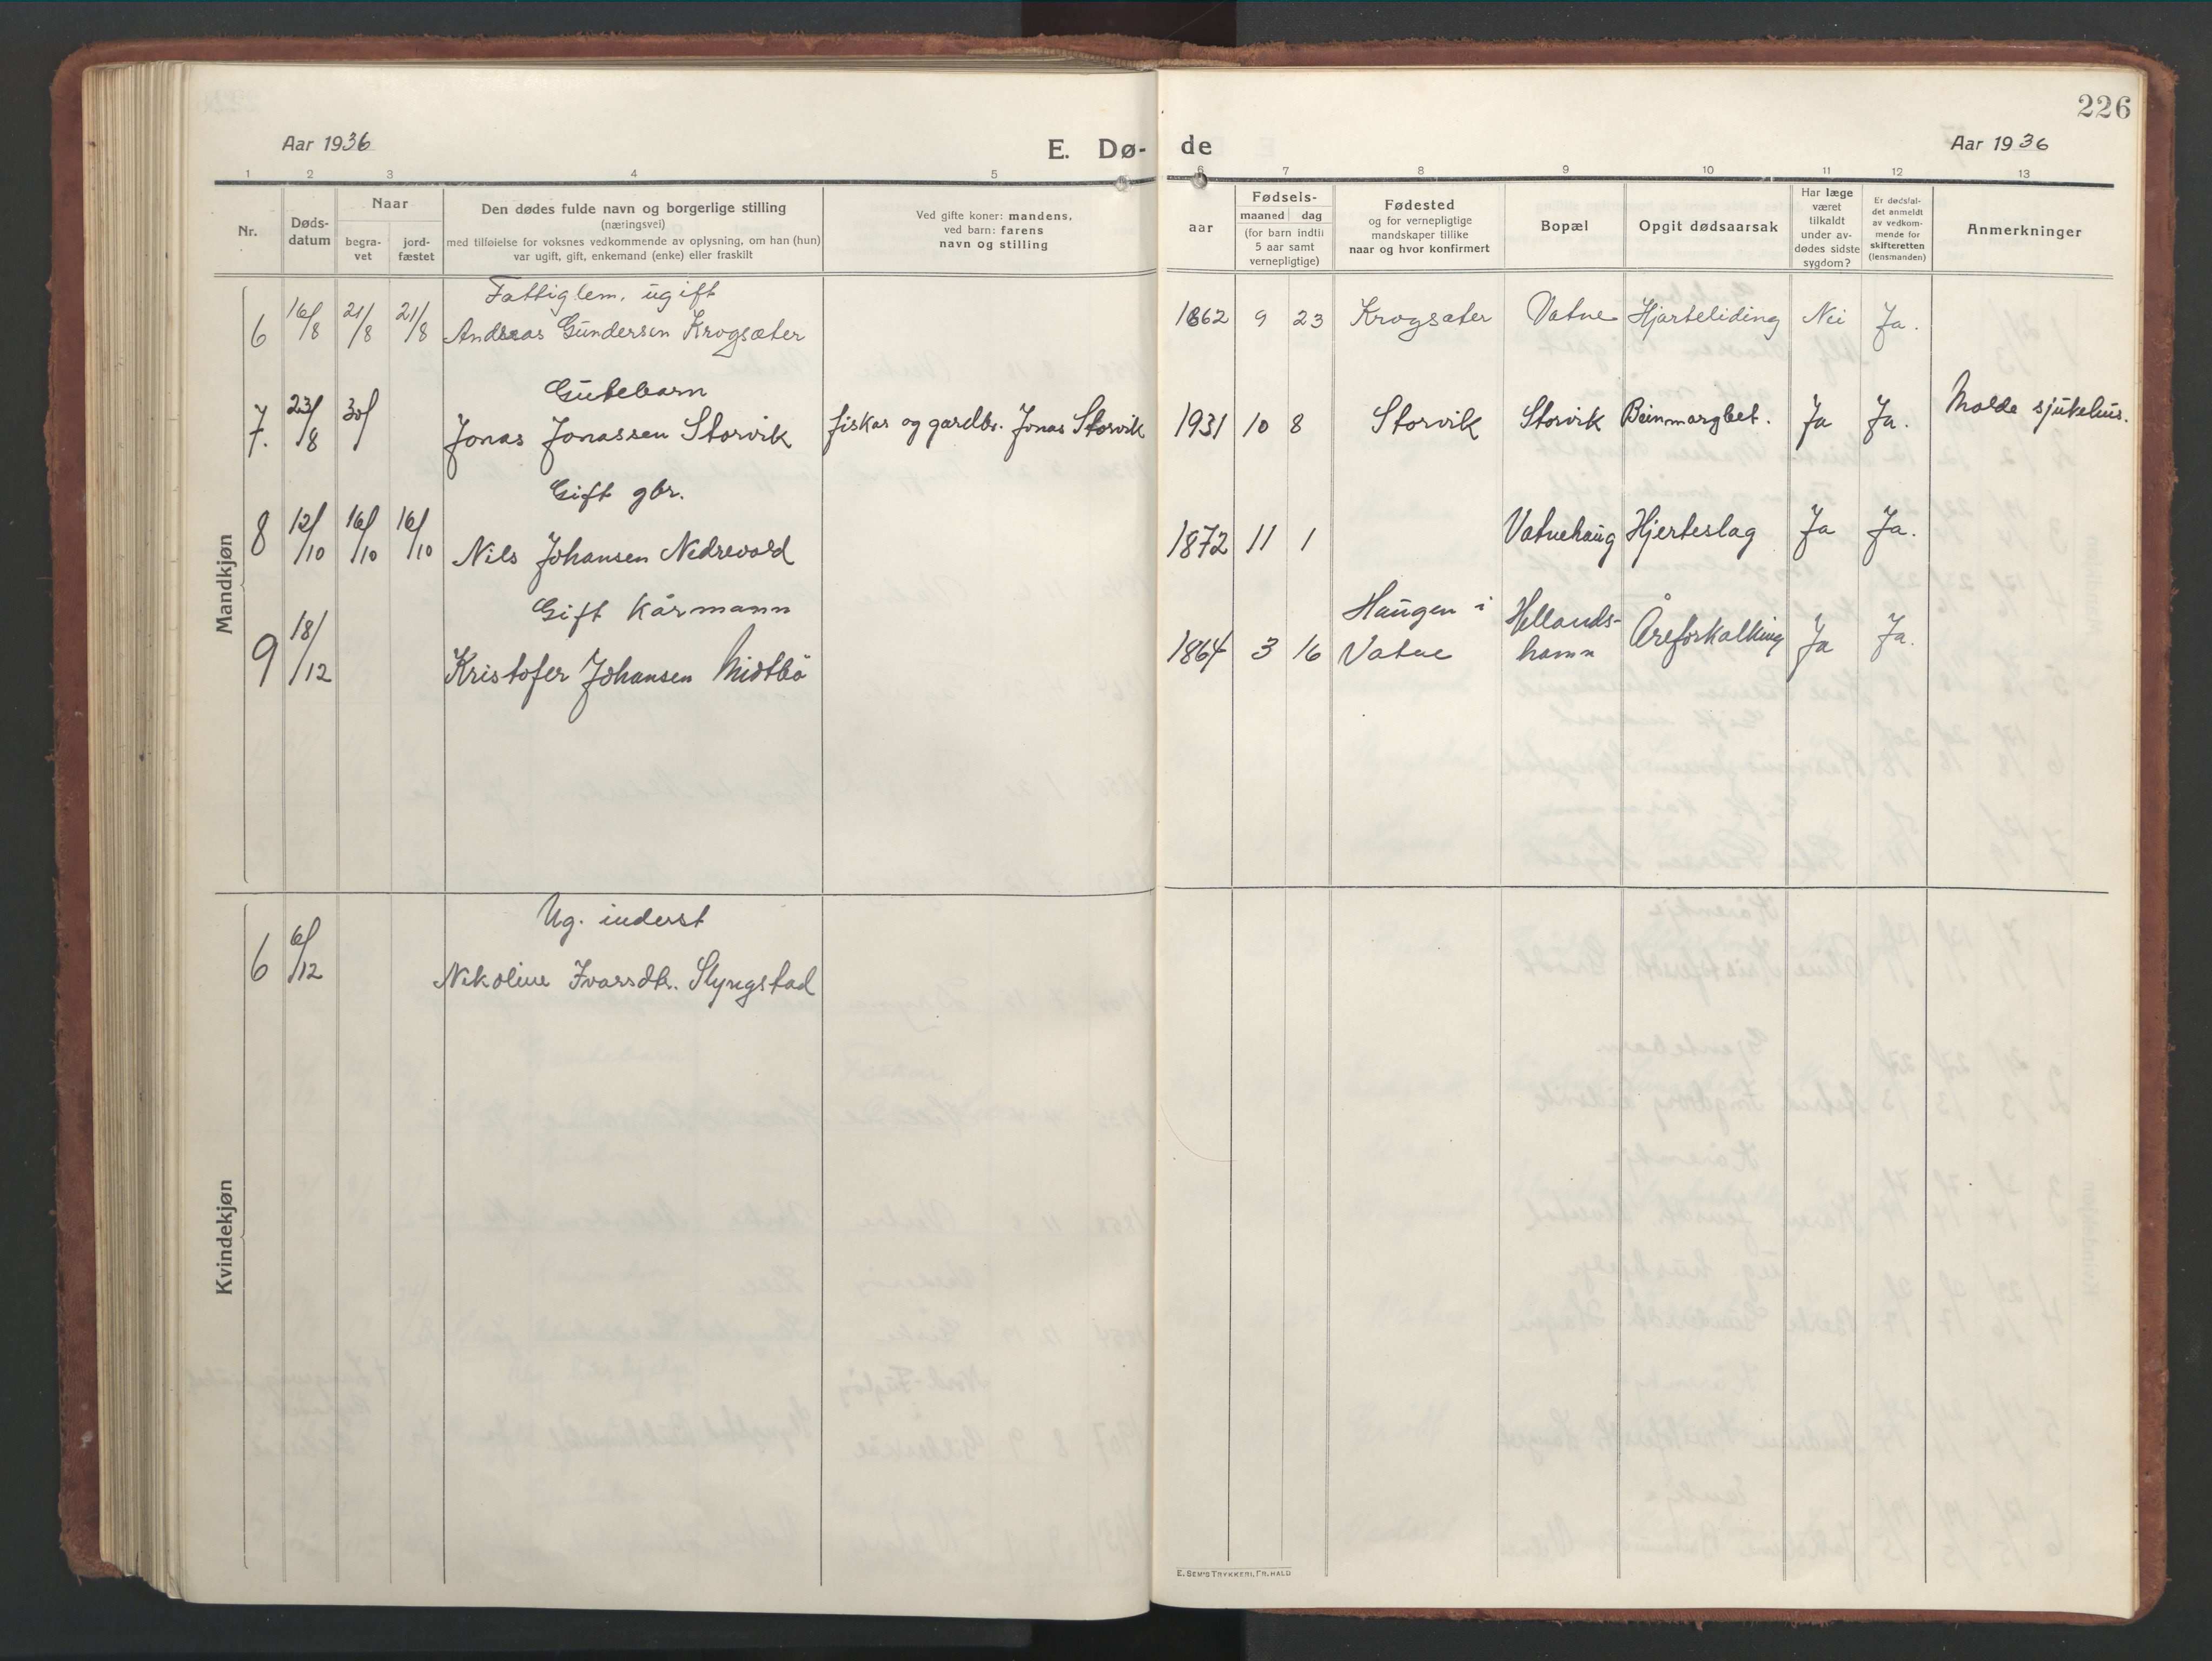 226
Aar 1936
E. Dø-
de
Aar 1936
1 2 3 4 5 6 7 8 9 10 11 12 13
Nr.
Døds-
datum
Naar
begra-
vet
jord-
fæstet
Den dødes fulde navn og borgerlige stilling
(næringsvei)
med tilføielse for voksnes vedkommende av oplysning, om han (hun)
var ugift, gift, enkemand (enke) eller fraskilt
Ved gifte koner: mandens,
ved barn: farens
navn og stilling
Fødsels-
aar
maaned dag
(for barn indtil
5 aar samt
vernepligtige)
Fødested
og for vernepligtige
mandskaper tillike
naar og hvor konfirmert
Bopæl
Opgit dødsaarsak
Har læge
været
tilkaldt
under av-
dødes sidste
sygdom?
Er dødsfal-
det anmeldt
av vedkom-
mende for
skifteretten
(lensmanden)
Anmerkninger
Mandkjøn
Fattiglem, ugift
6 16/8 21/8 21/8 Andreas Gundersen Krogsæter 1862 9 23 Krogsæter Vatne Hjarteliding Nei Ja.
Gutebarn
7. 23/8 30/ Jonas Jonassen Storvik fiskar og gardbr. Jonas Storvik 1931 10 8 Storvik Storvik Beinmargbet. Ja Ja. Molde sjukehus.
Gift gbr.
8 12/10 16/10 16/10 Nils Johansen Nedrevold 1872 11 1 Vatnehaug Hjerteslag Ja Ja.
Gift Kårmann Haugen i Hellands-
9 18/12 Kristofer Johansen Midtbö 1864 3 16 Vatne hamn Åreforkalking Ja Ja.
Kvindekjøn
Ug. inderst
6 6/12 Nikoline Ivarsdtr. Slyngstad
E. SEM'S TRYKKERI, FR. HALD